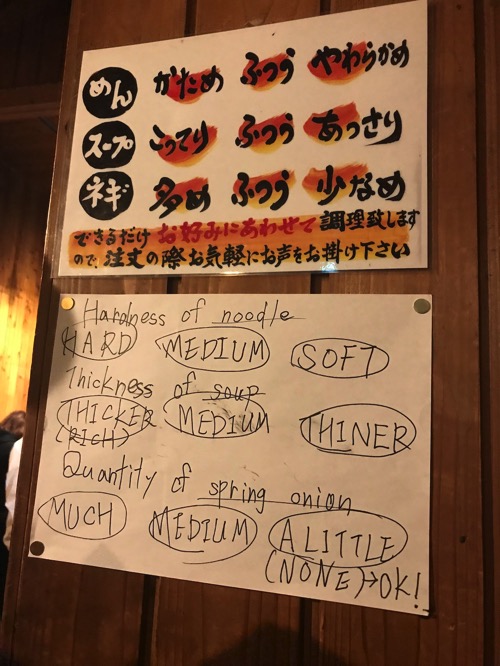 めん かため ふつう やわらかめ
スープ こってり ふつう あっさり
ネギ 多め ふつう 少なめ
できるだけ お好みにあわせて 調理致します
ので、注文の際お気軽にお声をお掛け下さい
Hardness of noodle
HARD MEDIUM SOFT
Thickness of soup
THICKER MEDIUM THINER
(RICH)
Quantity of spring onion
MUCH MEDIUM A LITTLE
(NONE)→OK!